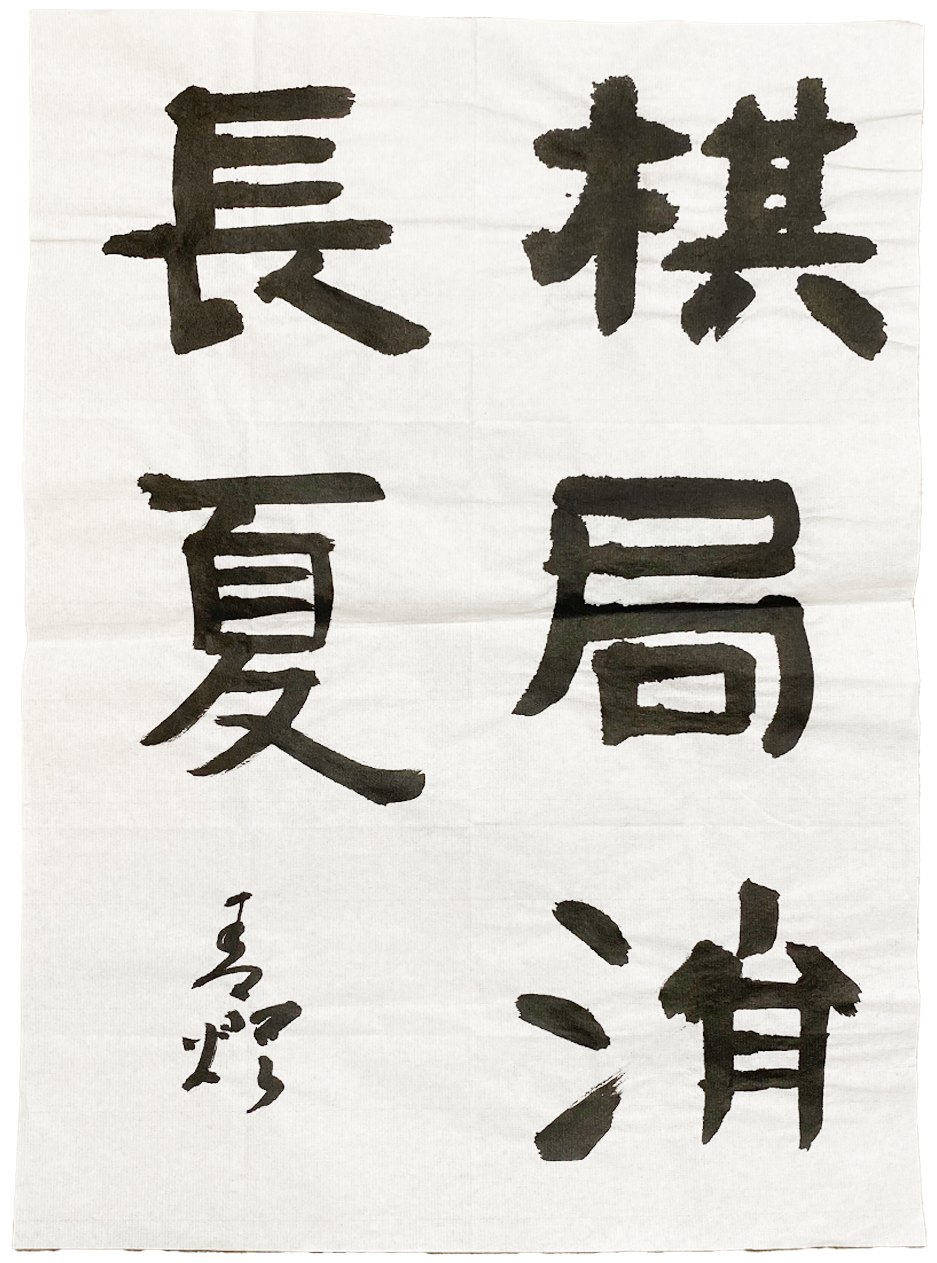 棋局消
長夏